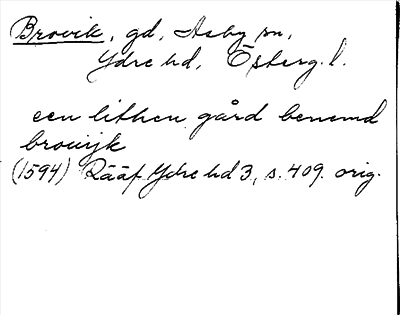 Brovik, gd, Asby sn,
Ydre hd, Österg. l.
een lithen gård benemd
brouijk
(1594) Rääf Ydre hd 3, s. 409. orig.